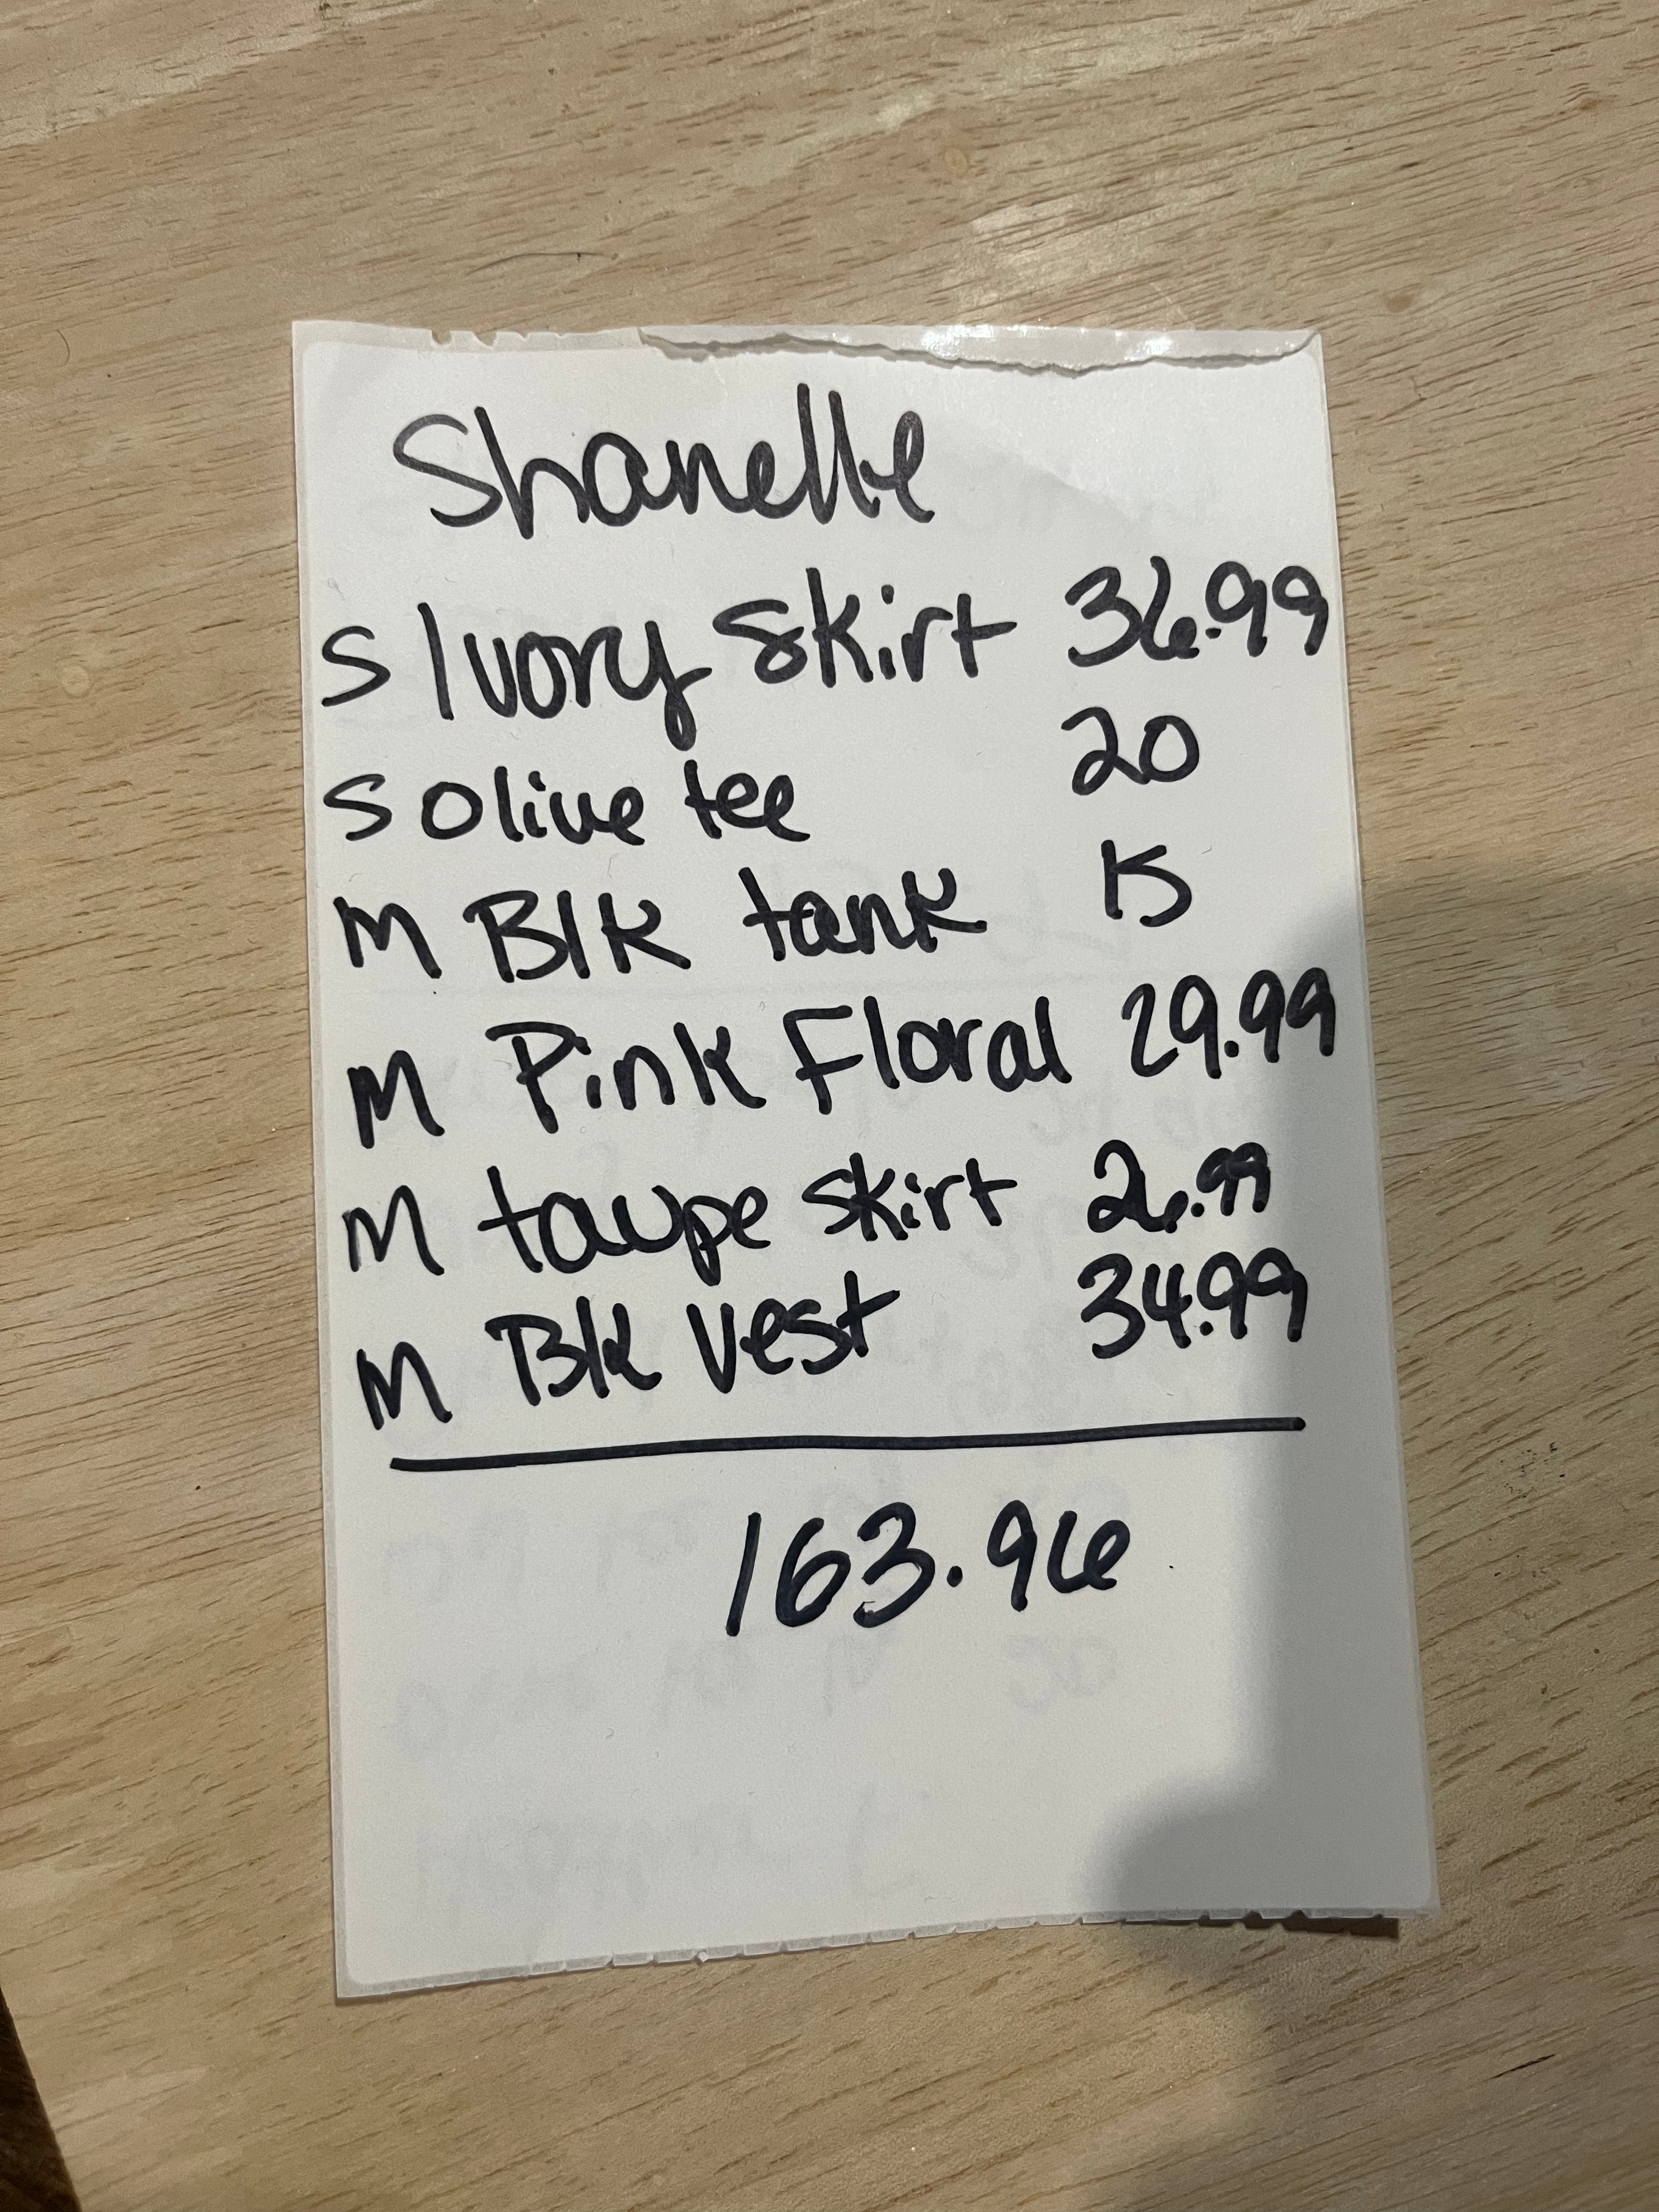 Shanelle
S Ivory Skirt 36.99
S Olive tee 20
M Blk tank 15
M Pink Floral 29.99
M taupe skirt 26.99
M Blk Vest 34.99
163.96